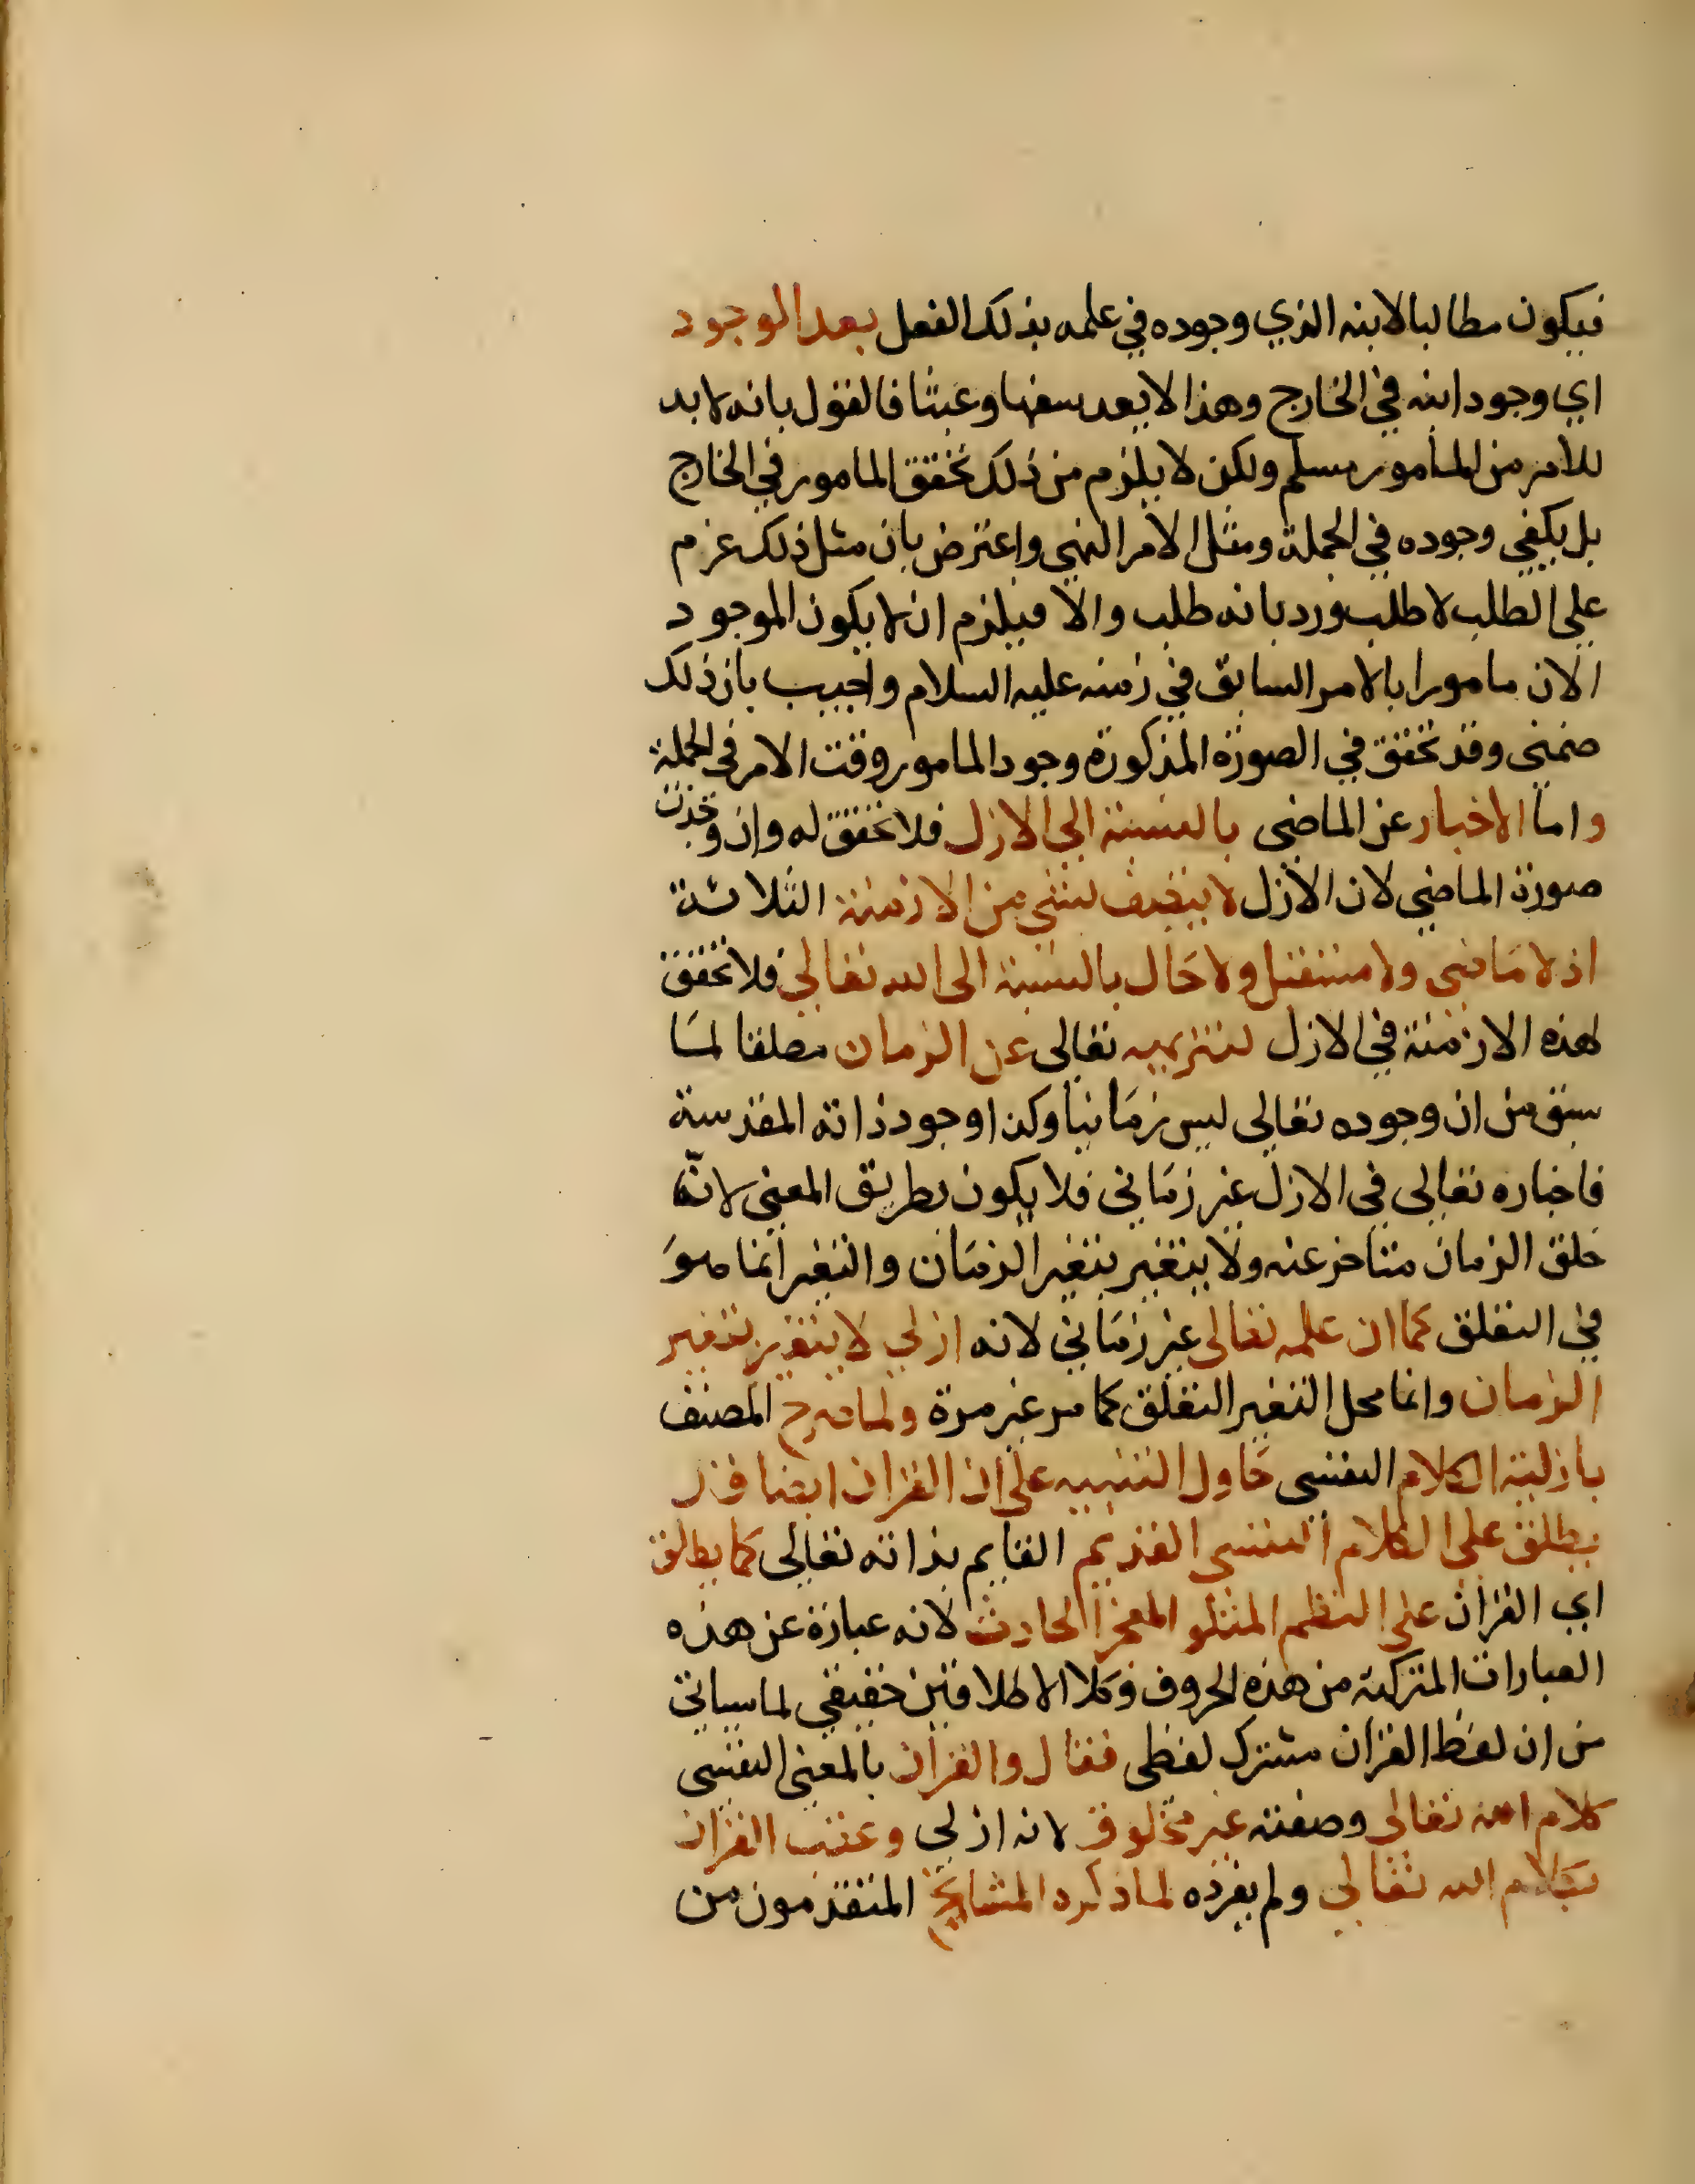 فيكون مطالبا لابنه الذي وجوده في علمه بذلك الفعل بعد الوجود
اي وجود ابنه في الخارج وهذا لا يعد سفها وعبثا فالقول بانه لا بد
للامر من المامور مسلم ولكن لا يلزم من ذلك تحقق المامور في الخارج
بل يكفي وجوده في الجملة ومثل الامر النهي واعترض بان مثل ذلك عزم
على الطلب لا طلب ورد بانه طلب والا فيلزم ان لا يكون الموجود
الان مامورا بالامر السابق في زمنه عليه السلام واجيب بان ذلك
ضمني وقد تحقق في الصورة المذكورة وجود المامور وقت الامر في الجملة
واما الاخبار عن الماضي بالنسبة الى الازل فلا تحقق له وان وجدت
صورة الماضي لان الازل لا يتصف بشي من الازمنة الثلاثة
اذ لا ماضي ولا مستقبل ولا حال بالنسبة الى الله تعالى فلا تحقق
لهذه الازمنة في الازل لتنزيهه تعالى عن الزمان مطلقا لما
سبق من ان وجوده تعالى ليس زمانيا وكذا وجود ذاته المقدسة
فاخباره تعالى في الازل غير زماني فلا يكون بطريق المعنى لانه
خلق الزمان متاخر عنه ولا يتغير بتغير الزمان والتغير انما هو
في التعلق كما ان علمه تعالى غير زماني لانه ازلي لا يتغير بتغير
الزمان وانما محل التغير التعلق كما مر غير مرة ولما صرح المصنف
بازلية الكلام النفسي حاول التنبيه على ان القران ايضا قد
يطلق على الكلام النفسي القديم القايم بذاته تعالى كما يطلق
اي القران على النظم المتلو المعجز الحادث لانه عبارة عن هذه
العبارات المتركبة من هذه الحروف وكلا الاطلاقين حقيقي لما سياتي
من ان لفظ القران مشترك لفظي فقال والقران بالمعنى النفسي
كلام الله تعالى وصفته غير مخلوق لانه ازلي وعقب القران
بكلام الله تعالى ولم يفرده لما ذكره المشايخ المتقدمون من